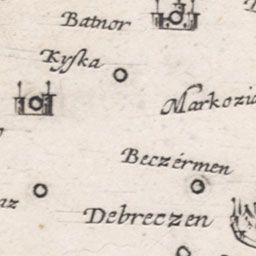 Batnor
Kyſka
Markozia
Beczérmen
az
Debreczen